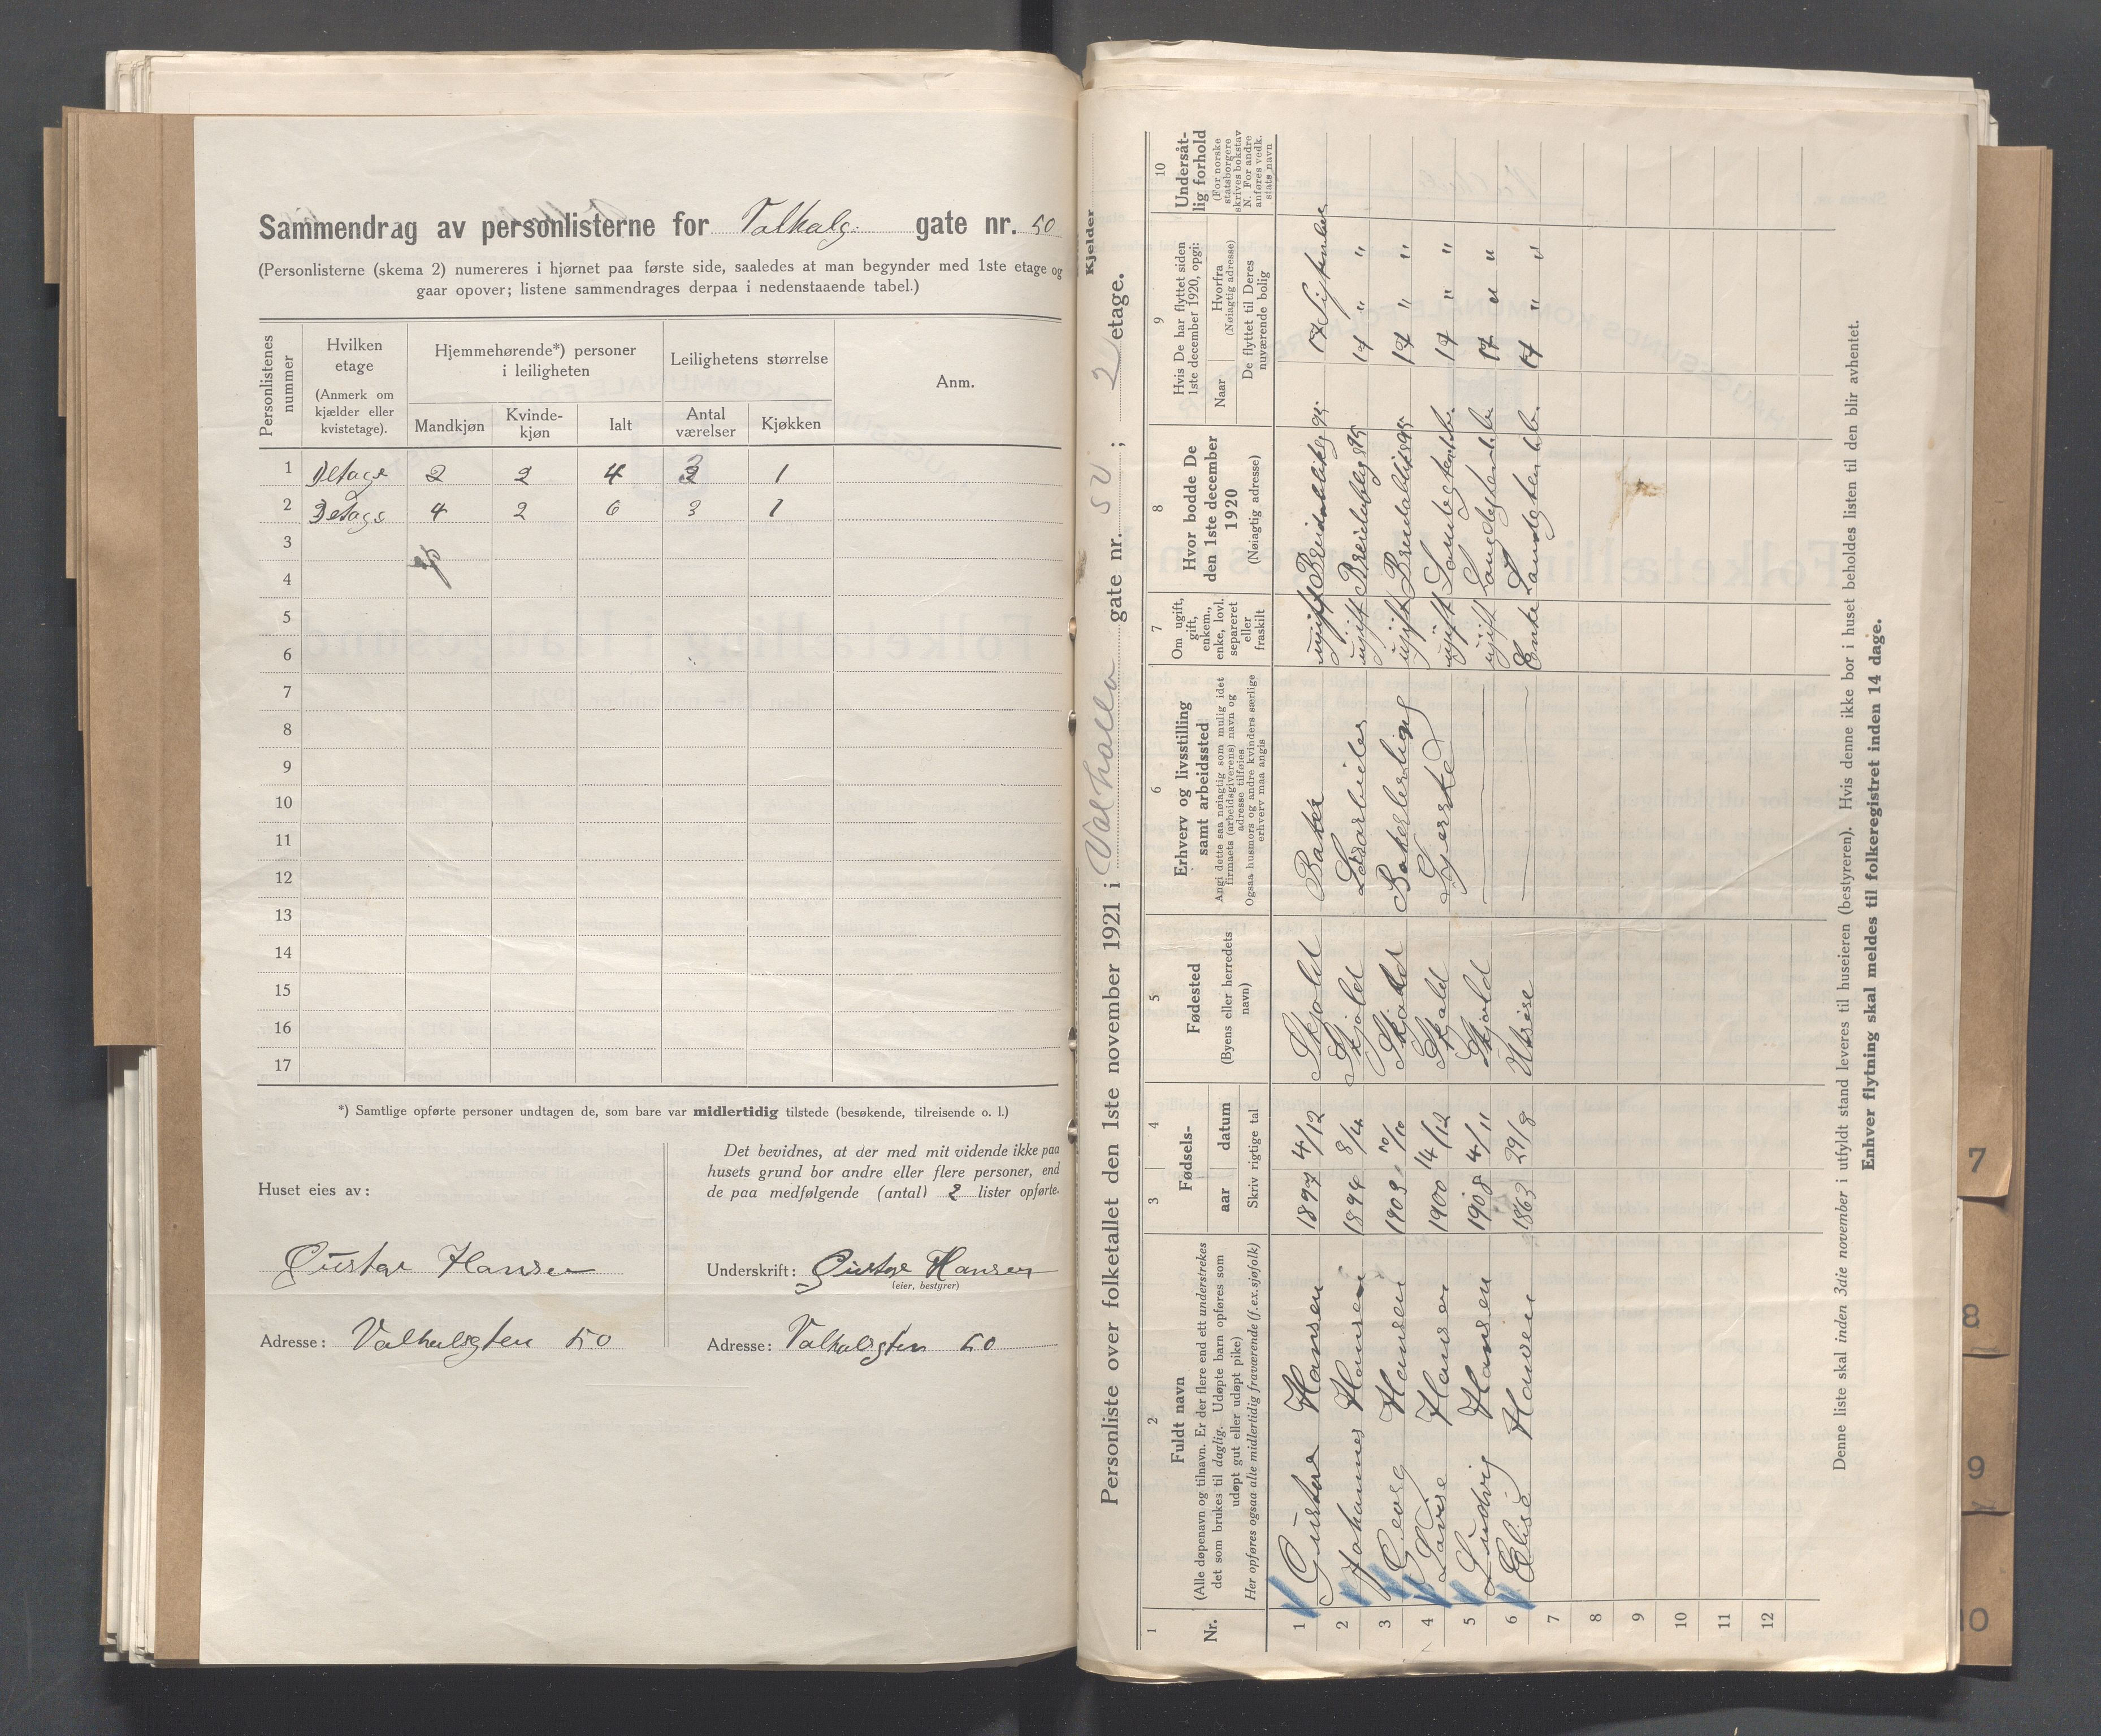 Sammendrag av personlisterne for Valhalg. gate nr. 50
(Personlisterne (skema 2) numereres i hjørnet paa første side, saaledes at man begynder med 1ste etage og
gaar opover; listene sammendrages derpaa i nedenstaaende tabel.)
Personlistenes nummer
Hvilken etage
(Anmerk om kjælder eller kvistetage).
Hjemmehørende*) personer i leiligheten
Mandkjøn
Kvinde-kjøn
Ialt
Leilighetens størrelse
Antal værelser
Kjøkken
Anm.
1 1 Etage 2 2 4 3 1
2 2 Etage 4 2 6 3 1
3
4
5
6
7
8
9
10
11
12
13
14
15
16
17
*) Samtlige opførte personer undtagen de, som bare var midlertidig tilstede (besøkende, tilreisende o. l.)
Huset eies av:
Gustav Hansen
Adresse: Valhalsgten 50
Det bevidnes, at der med mit vidende ikke paa
husets grund bor andre eller flere personer, end
de paa medfølgende (antal) 2 lister opførte.
Underskrift: Gustav Hansen
(eier, bestyrer)
Adresse: Valhalsgten 50
Kjelder
Personliste over folketallet den 1ste november 1921 i Valhalla gate nr. 50; 2 etage.
1
Nr.
2
Fuldt navn
(Alle døpenavn og tilnavn. Er der flere end ett understrekes
det som brukes til daglig. Udøpte barn opføres som
udøpt gut eller udøpt pike)
Her opføres ogsaa alle midlertidig fraværende (f.ex. sjøfolk)
3 4
Fødsels-
aar datum
Skriv rigtige tal
5
Fødested
(Byens eller herredets
navn)
6
Erhverv og livsstilling
samt arbeidssted
Angi dette saa nøiagtig som mulig idet
firmaets (arbeidsgiverens) navn og
adresse tilføies
Ogsaa husmors og andre kvinders særlige
erhverv maa angis
7
Om ugift,
gift,
enkem.,
enke, lovl.
separeret
eller
fraskilt
8
Hvor bodde De
den 1ste december
1920
(Nøiagtig adresse)
9
Hvis De har flyttet siden
1ste december 1920, opgi:
Naar
Hvorfra
(Nøiagtig adresse)
De flyttet til Deres
nuværende bolig
10
Undersåt-
lig forhold
(For norske
statsborgere
skrives bokstav
N. For andre
anføres vedk.
stats navn
1 Gustav Hansen 1897 4/12 Skjold Baker ugift 95 17 September
2 Johannes Hansen 1894 8/4 Skjold ugift 95 17 " "
3 Georg Hansen Skjold Bakerlerling ugift 95 17 " "
4 Hansen 1900 14/12 Skjold ugift 17 " "
5 Ludvig Hansen 1908 4/11 Skjold ugift 17 " "
6 Elise Hansen 1863 29/8 Utsire Enke 17 " "
7
8
9
10
11
12
Denne liste skal inden 3die november i utfyldt stand leveres til huseieren (bestyreren). Hvis denne ikke bor i huset beholdes listen til den blir avhentet.
Enhver flytning skal meldes til folkeregistret inden 14 dage.
7
8
9
10